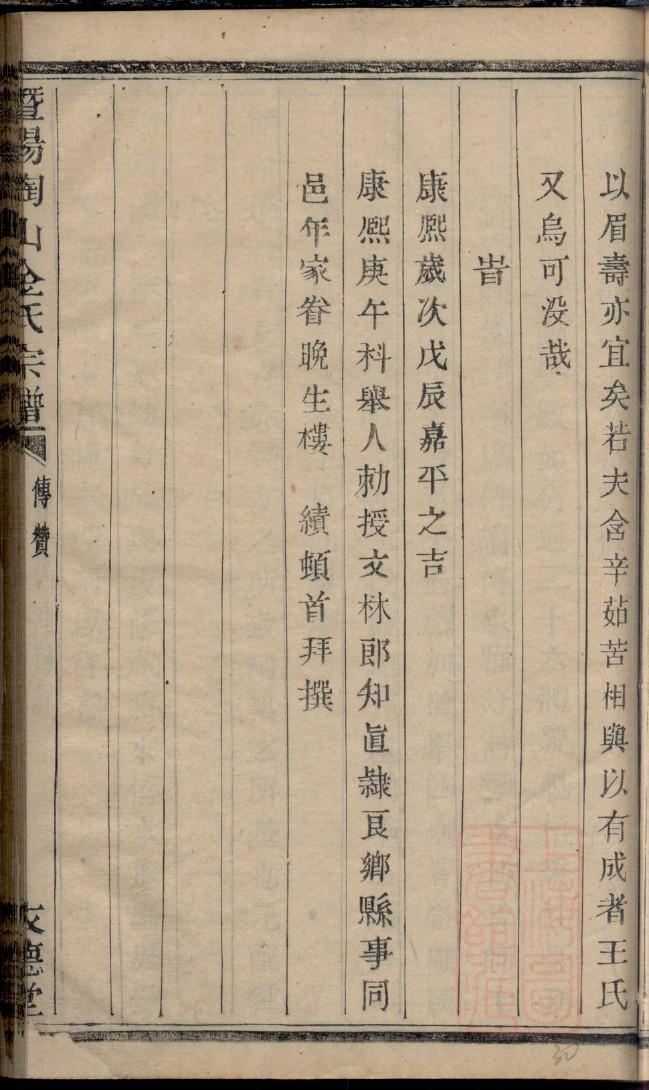 以眉壽亦宜矣若夫含辛茹苦相與以有成者王氏
又烏可没哉
旹
康熙歲次戊辰嘉平之吉
康熙庚午科舉人勅授文林郎知直隸良鄉縣事同
邑年家眷晚生樓　績頓首拜撰
暨陽陶山金氏宗譜
傳贊
文德堂
30